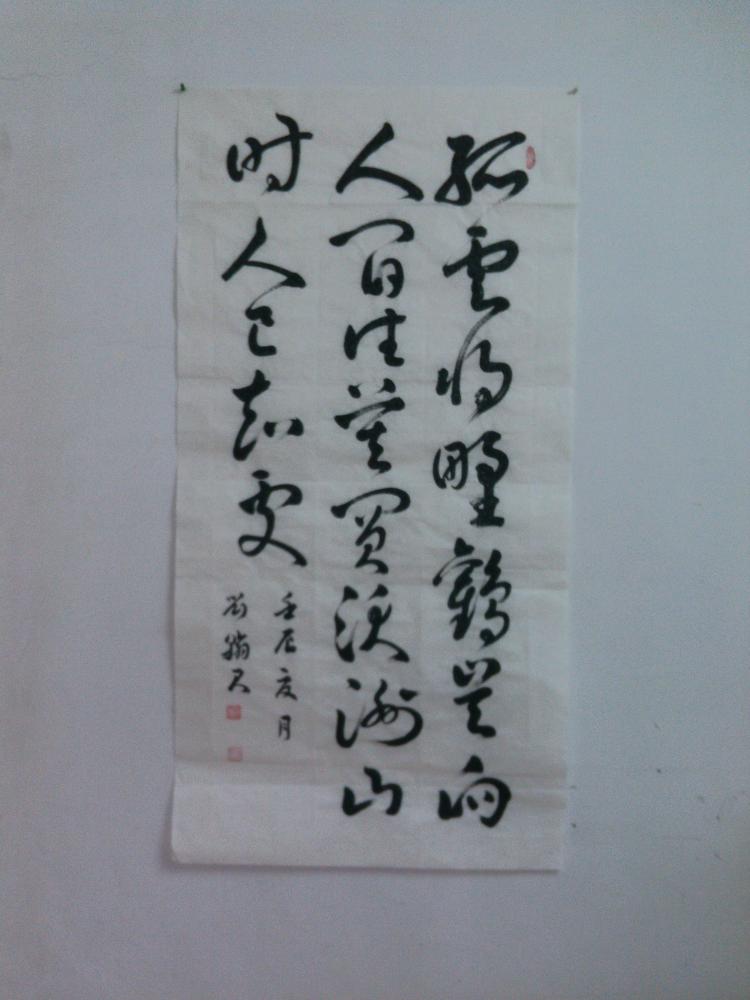 孤云将野鹤岂向
人间住莫买沃洲山
时人已知处
壬辰夏月